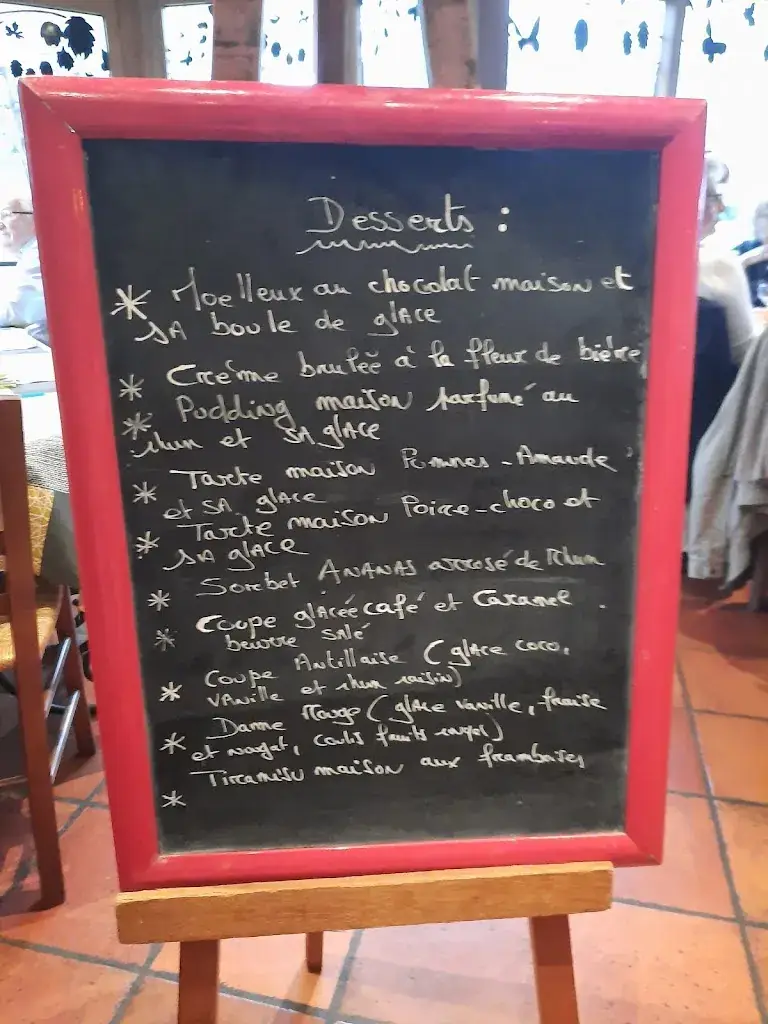 Desserts :
* Moelleux au chocolat maison et
sa boule de glace
* Crème brulée à la fleur de bière
* Pudding maison parfumé au
rhum et sa glace
* Tarte maison Pommes - Amande
et sa glace
* Tarte maison Poire-choco et
sa glace
* Sorbet Ananas arrosé de Rhum
* Coupe glacée café et Caramel
beurre salé
* Coupe Antillaise (glace coco,
vanille et rhum raisin)
* Dame Rouge (glace vanille, fraise
et nougat, coulis fruits rouges)
* Tiramisu maison aux framboises